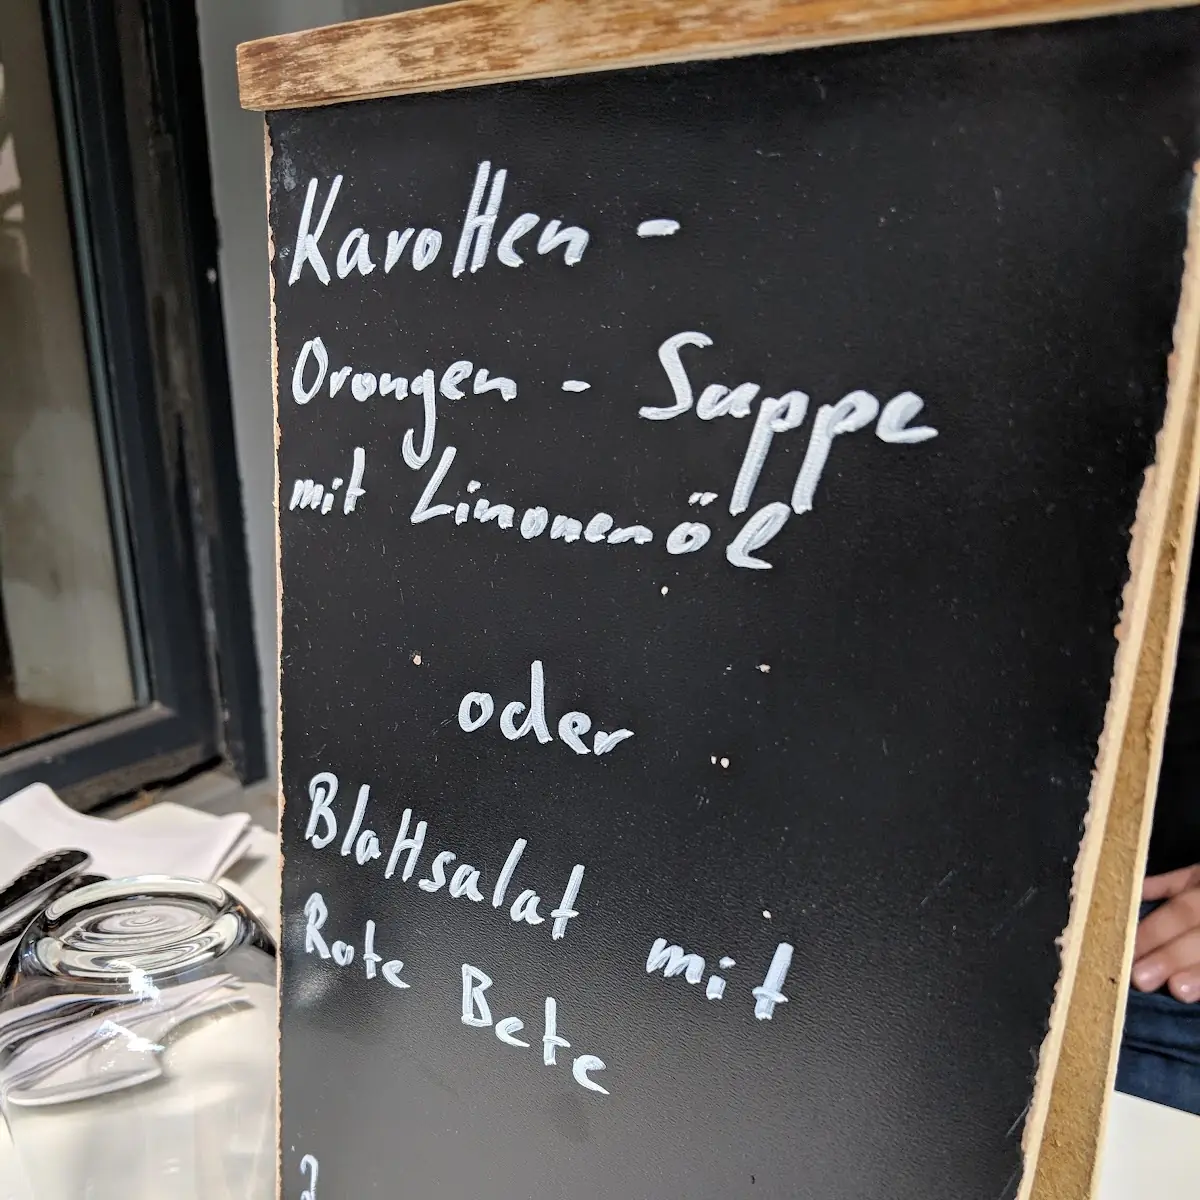 Karotten -
Orangen - Suppe
mit Limonenöl
oder
Blattsalat mit
Rote Bete